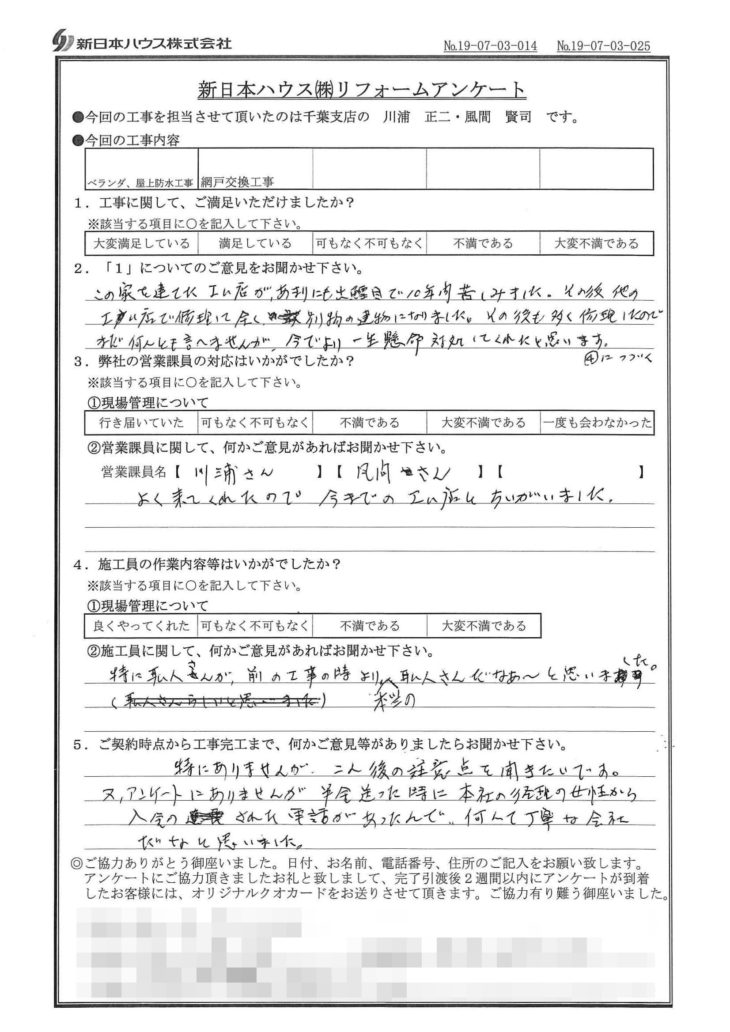 新日本ハウス株式会社 No.19-07-03-014 No.19-07-03-025
新日本ハウス㈱リフォームアンケート
●今回の工事を担当させて頂いたのは千葉支店の 川浦 正二・風間 賢司 です。
●今回の工事内容
ベランダ、屋上防水工事 網戸交換工事
1．工事に関して、ご満足いただけましたか？
※該当する項目に○を記入して下さい。
大変満足している 満足している 可もなく不可もなく 不満である 大変不満である
2．「1」についてのご意見をお聞かせ下さい。
この家を建てた工ム店が、あまりにも出鱈目で10年間苦しみました。その後他の
工ム店で修理して全く別物の建物になりました。その後も多く修理したので
まだ何んとも言へませんが、今でより一生懸命対処してくれたと思います。
④につづく
3．弊社の営業課員の対応はいかがでしたか？
※該当する項目に○を記入して下さい。
①現場管理について
行き届いていた 可もなく不可もなく 不満である 大変不満である 一度も会わなかった
②営業課員に関して、何かご意見があればお聞かせ下さい。
営業課員名【 川浦さん 】【 風間さん 】【 】
よく来てくれたので 今までの工ム店とちがいました。
4．施工員の作業内容等はいかがでしたか？
※該当する項目に○を記入して下さい。
①現場管理について
良くやってくれた 可もなく不可もなく 不満である 大変不満である
②施工員に関して、何かご意見があればお聞かせ下さい。
特に職人さんが、前の工事の時より、本当の職人さんだなあ〜と思いました。
(職人さんらしいと思いました)
5．ご契約時点から工事完工まで、何かご意見等がありましたらお聞かせ下さい。
特にありませんが、こん後の注意点を聞きたいです。
又、アンケートにありませんが半金送った時に本社の経理の女性から
入金の された電話があったんで、何んて丁寧な会社
だなと思いました。
◎ご協力ありがとう御座いました。日付、お名前、電話番号、住所のご記入をお願い致します。
アンケートにご協力頂きましたお礼と致しまして、完了引渡後２週間以内にアンケートが到着
したお客様には、オリジナルクオカードをお送りさせて頂きます。ご協力有り難う御座いました。